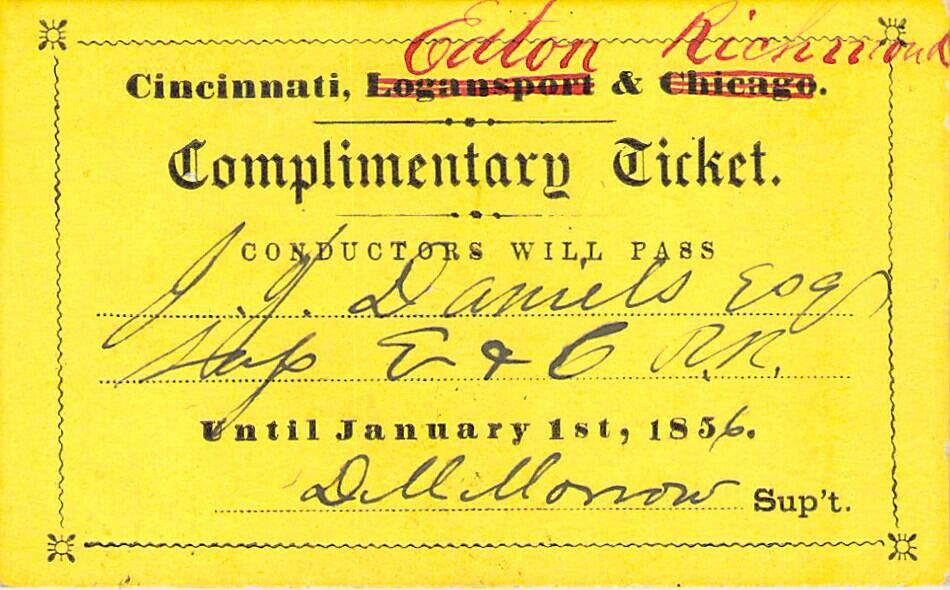 Eaton Richmond
Cincinnati, Logansport & Chicago.
Complimentary Ticket.
CONDUCTORS WILL PASS
J. J. Daniels Esq
Sup E & C R.R.
Until January 1st, 1856.
D M Morrow Sup't.